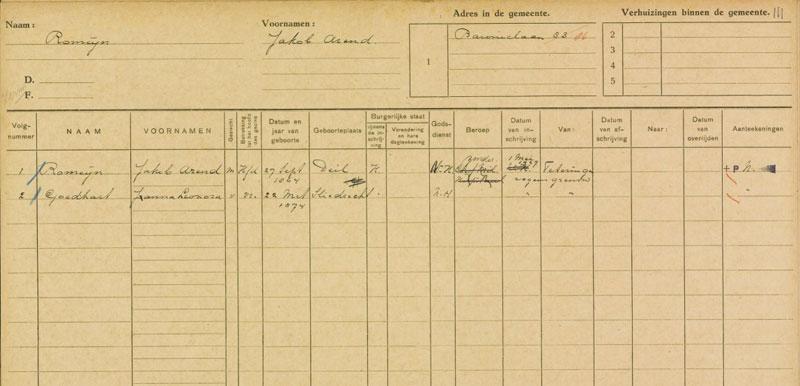 Naam:
Romeyn
Voornamen:
Jakob Arend
Adres in de gemeente.
1 Baronielaan 33
Verhuizingen binnen de gemeente.
2
3
4
5
D.
F.
Volg-nummer NAAM VOORNAMEN Geslacht Betrekking tot het hoofd van het gezin Datum en jaar van geboorte Geboorteplaats Burgerlijke staat tijdens de inschrijving Verandering en hare dagteekening Gods-dienst Beroep Datum van in-schrijving Van: Datum van af-schrijving Naar: Datum van overlijden Aanteekeningen
1 Romeyn Jakob Arend m Hfd 27 Sept Deil H. N.H. Teteringen
2 Goedhart v vr. 22 Mrt 1874 Sliedrecht N.H. " "